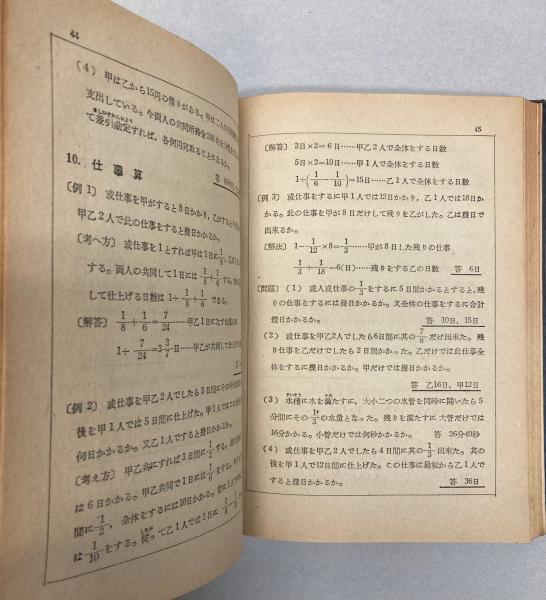 44
(4) 甲は乙から15円の借りがある。甲は二人の
支出している。今両人の共同所持金200円を
て差引勘定すれば、各何円宛取ることになるか。
さしひきかんじょう
答
10. 仕事算
〔例1〕 或仕事を甲がすると8日かかり、乙がすると
甲乙2人で此の仕事をすると幾日かかるか。
〔考へ方〕 或仕事を1とすれば甲は1日に1/8、乙は
する。両人の共同して1日には 1/8+1/6 する。
して仕上げる日数は 1÷ 1/8+1/6 である。
〔解答〕 1/8+1/6=7/24……甲乙1日になす仕事
1÷7/24=3 3/7日……甲乙が共同して仕上
〔例2〕 或仕事を甲乙2人でしたら3日間にその
後を甲1人では5日間に仕上げた。甲1人では
何日かかるか。又乙1人ですると幾日かかるか。
〔考え方〕 甲乙共にすれば3日間に
は6日かかる。甲乙共同で1日には1/6をする。
間に1/2, 全体をするには10日かかる。
は1/10をする。従って乙1人では1日に 1/6-
したが
45
〔解答〕 3日×2=6日……甲乙2人で全体をする日数
5日×2=10日……甲1人で全体をする日数
1÷(1/6-1/10)=15日……乙1人で全体をする日数
〔例3〕 或仕事をするに甲1人では12日かかり、乙1人では18日か
かる。此の仕事を甲が8日だけして残りを乙がした。乙は幾日で
出来るか。
〔解決〕 1-1/12×8=1/3……甲が8日した残りの仕事
1/3÷1/18=6(日)……残りをする乙の日数 答 6日
〔問題〕 (1) 或人或仕事の1/3をするに5日間かかるとすると、残
りの仕事をするには幾日かかるか。又全体の仕事をするに合計
幾日かかるか。 答 10日,15日
(2) 或仕事を甲乙2人でしたら6日間に其の7/8だけ出来た。残
り仕事を乙だけでしたら2日間かかった。乙だけでは此仕事全
体をするに幾日かかるか。甲だけでは幾日かかるか。
答 乙16日,甲12日
すいそう み
(3) 水槽に水を満たすに、大小二つの水管を同時に開いたら5
分間にその1/3の水量となった。残りを満たすに大管だけでは
16分かかる。小管だけでは何秒かかるか。 答 26分40秒
(4) 或仕事を甲乙2人でしたら4日間に其の1/3出来た。其の
後を甲1人で12日間に仕上げた。この仕事は最初から乙1人で
すると幾日かかるか。 答 36日